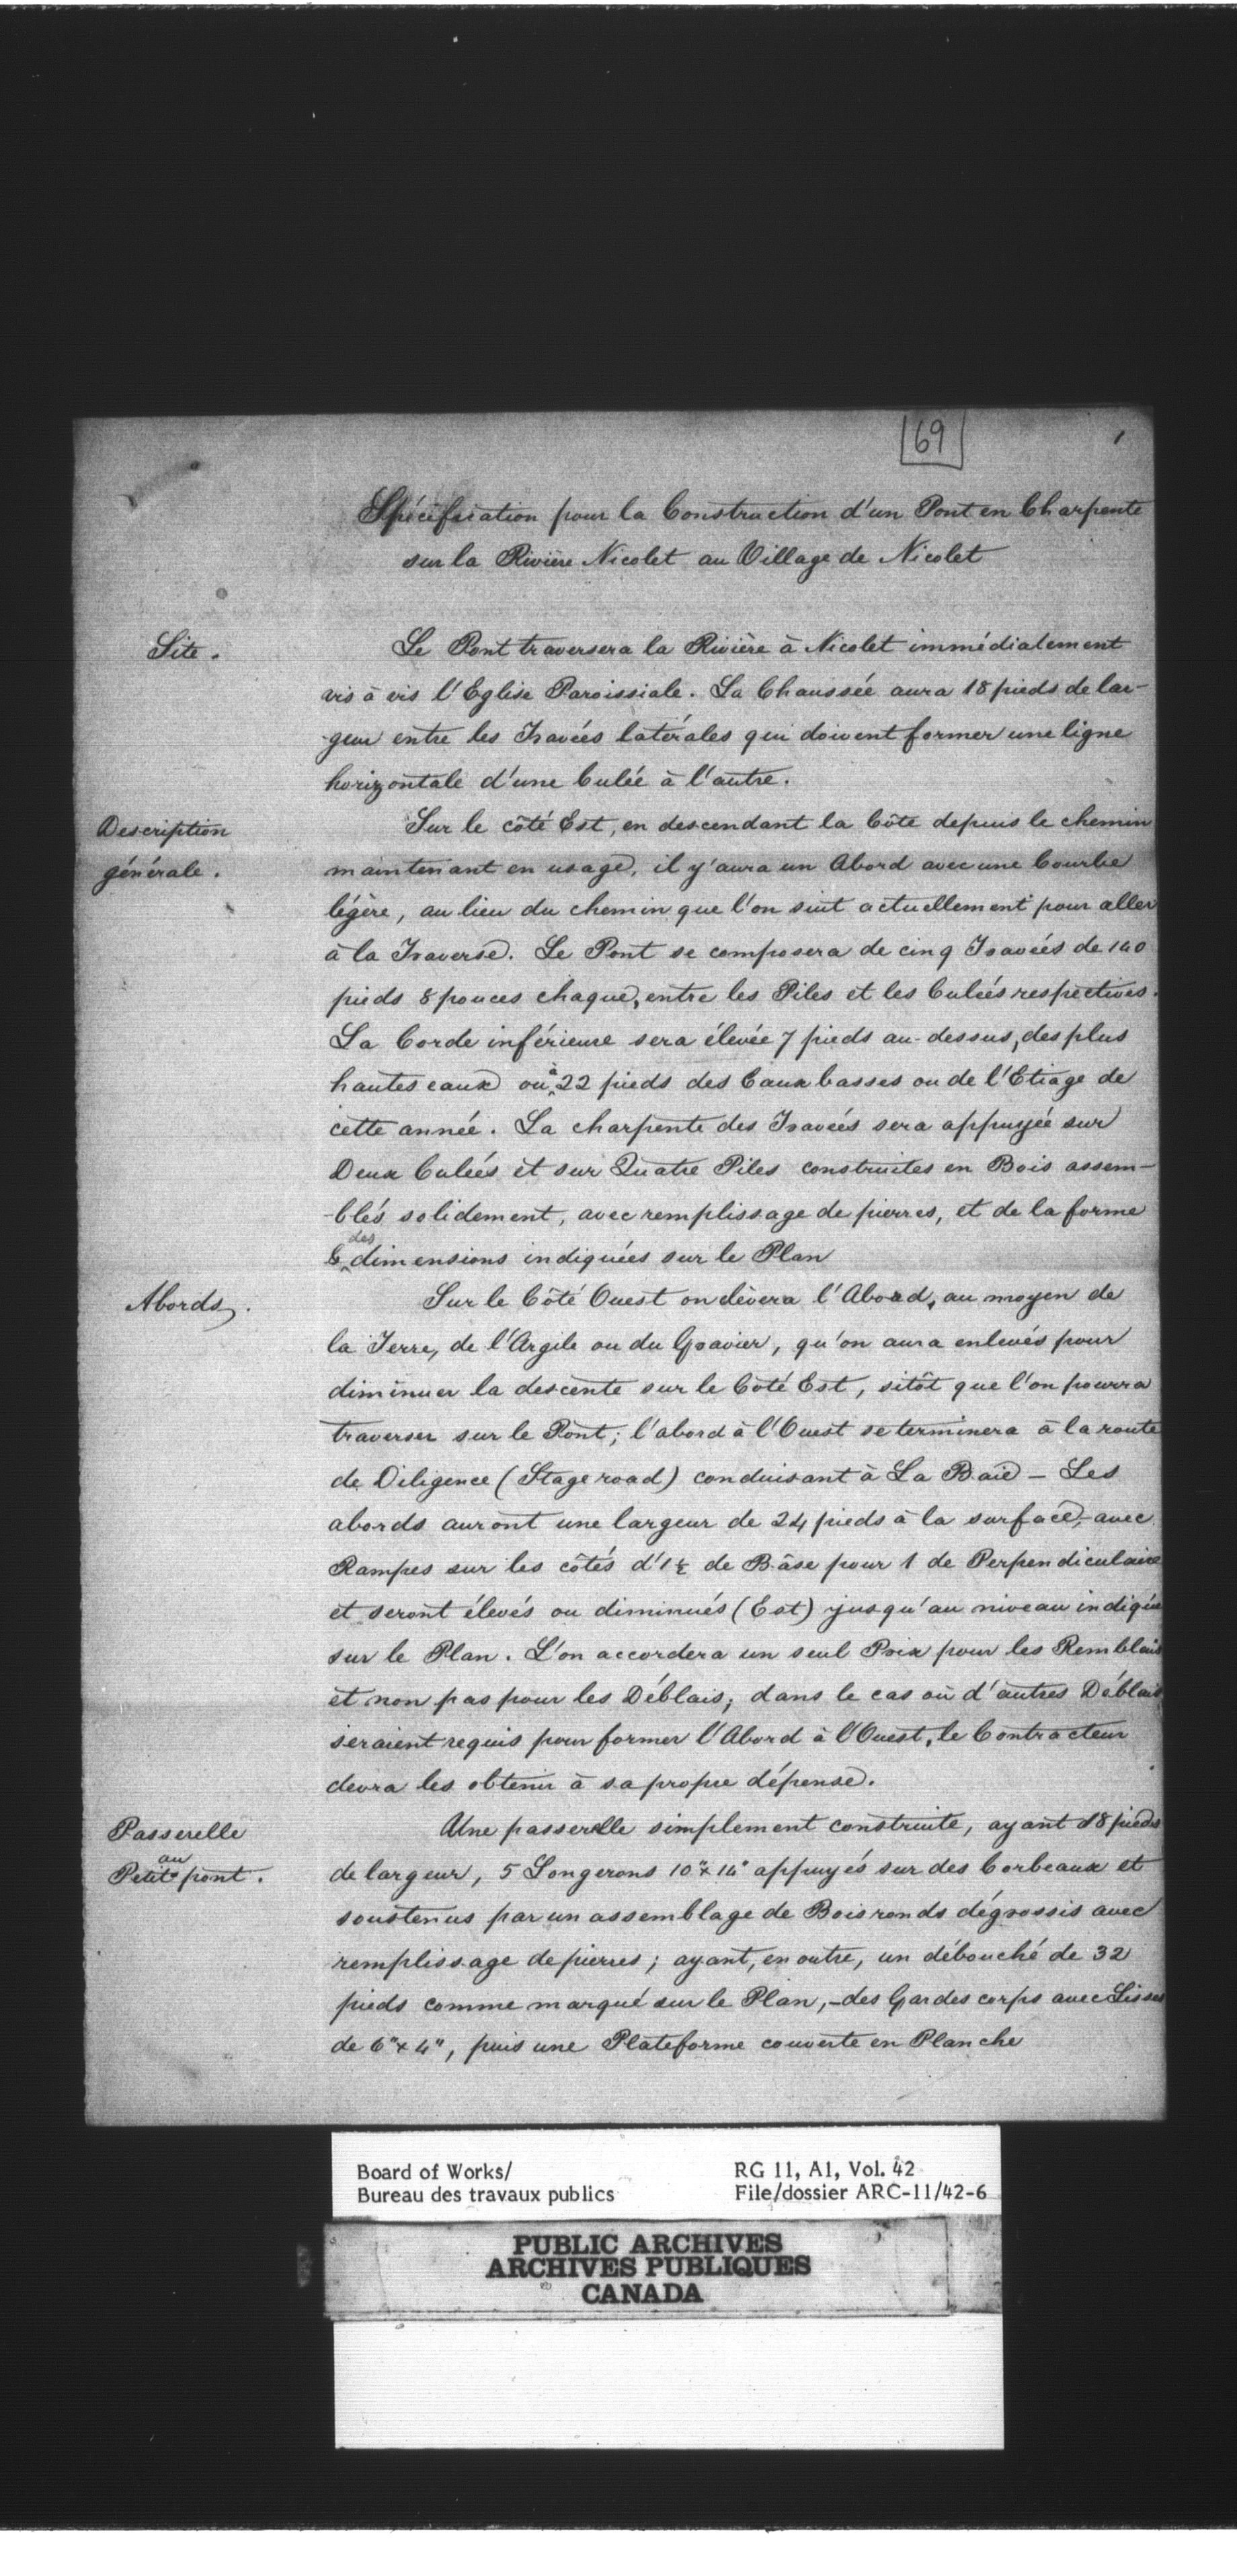 69
1
Spécification pour la Construction d'un Pont en Charpente
sur la Rivière Nicolet au Village de Nicolet
Site.
Le Pont traversera la Rivière à Nicolet immédiatement
vis à vis l'Eglise Paroissiale. La Chaussée aura 18 pieds de lar-
-geur entre les Travées latérales qui doivent former une ligne
horizontale d'une Culée à l'autre.
Description
générale.
Sur le côté Est, en descendant la Côte depuis le chemin
maintenant en usage, il y'aura un Abord avec une Courbe
légère, au lieu du chemin que l'on suit actuellement pour aller
à la Traverse. Le Pont se composera de cinq Travées de 140
pieds 8 pouces chaque, entre les Piles et les Culées respectives.
La Corde inférieure sera élevée 7 pieds au-dessus, des plus
hautes eaux ou à 22 pieds des Eaux basses ou de l'Etiage de
cette année. La charpente des Travées sera appuyée sur
Deux Culées et sur Quatre Piles construites en Bois assem-
-blés solidement, avec remplissage de pierres, et de la forme
& des dimensions indiquées sur le Plan
Abords.
Sur le Côté Ouest on élèvera l'Abord, au moyen de
la Terre, de l'Argile ou du Gravier, qu'on aura enlevés pour
diminuer la descente sur le Côté Est, sitôt que l'on pourra
traverser sur le Pont; l'abord à l'Ouest se terminera à la route
de Diligence (Stage road) conduisant à La Baie - Les
abords auront une largeur de 24 pieds à la surface, - avec
Rampes sur les côtés d'1½ de Bâse pour 1 de Perpendiculaire
et seront élevés ou diminués (Est) jusqu'au niveau indiqué
sur le Plan. L'on accordera un seul Prix pour les Remblais
et non pas pour les Déblais; dans le cas où d'autres Déblais
seraient requis pour former l'Abord à l'Ouest, le Contracteur
devra les obtenir à sa propre dépense.
Passerelle
au
Petit pont.
Une passerelle simplement construite, ayant 18 pieds
de largeur, 5 Longerons 10" x 14" appuyés sur des Corbeaux et
soustenus par un assemblage de Bois ronds dégrossis avec
remplissage de pierres; ayant, en outre, un débouché de 32
pieds comme marqué sur le Plan, - des Gardes corps avec Lisses
de 6" x 4", puis une Plateforme couverte en Planche
Board of Works/
Bureau des travaux publics
RG 11, A1, Vol. 42
File/dossier ARC-11/42-6
PUBLIC ARCHIVES
ARCHIVES PUBLIQUES
CANADA